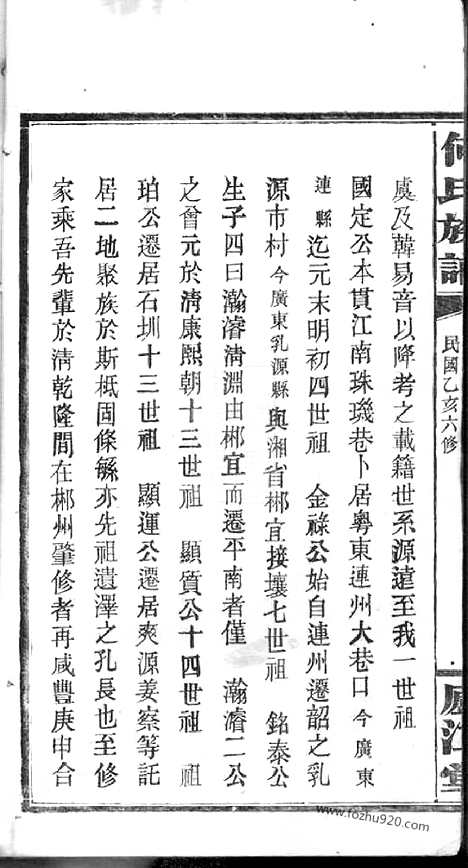 何氏族譜
民國乙亥六修
廬江堂
虞及韓易音以降考之載籍世系源遠至我一世祖
國定公本貫江南珠璣巷卜居粵東連州大巷口今廣東
連縣迄元末明初四世祖 金祿公始自連州遷韶之乳
源市村今廣東乳源縣與湘省郴宜接壤七世祖 銘泰公
生子四曰瀚濬清淵由郴宜而遷平南者僅 瀚濬二公
之曾元於清康熙朝十三世祖 顯質公十四世祖 祖
珀公遷居石圳十三世祖 顯運公遷居爽源姜寮等託
居二地聚族於斯柢固條緐亦先祖遺澤之孔長也至修
家乘吾先輩於清乾隆間在郴州肇修者再咸豐庚申合
www.fozhu920.com